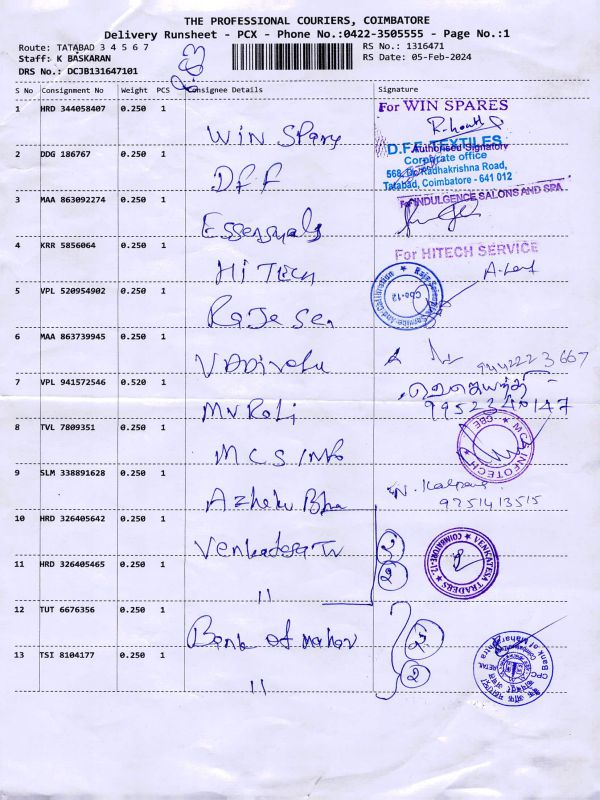 THE PROFESSIONAL COURIERS, COIMBATORE
Delivery Runsheet - PCX - Phone No.:0422-3505555 - Page No.:1
Route: TATABAD 3 4 5 6 7
Staff: K BASKARAN
DRS No.: DCJB131647101
RS No.: 1316471
RS Date: 05-Feb-2024
S No Consignment No Weight PCS Consignee Details Signature
1 HRD 344058407 0.250 1 WIN Spary
For WIN SPARES
Authorised Signatory
2 DDG 186767 0.250 1 D.F.F
D.F.F. TEXTILES
Corporate office
568, Dr. Radhakrishna Road,
Tatabad, Coimbatore - 641 012
3 MAA 863092274 0.250 1 Essensyals
For INDULGENCE SALONS AND SPA
4 KRR 5856064 0.250 1 Hi TECH
For HITECH SERVICE
5 VPL 520954902 0.250 1 Raja Sen
Cbe-12
6 MAA 863739945 0.250 1
7 VPL 941572546 0.520 1
9952340147
8 TVL 7809351 0.250 1 MCS info
MCS INFOTECH
CBE
9 SLM 338891628 0.250 1
9751413515
10 HRD 326405642 0.250 1 Venkadesa Tr
VENKATESA TRADERS
COIMBATORE-12
11 HRD 326405465 0.250 1 11
2
12 TUT 6676356 0.250 1 Bank of mahar
13 TSI 8104177 0.250 1 11
2
Bank of Maharashtra
CPC RETAIL